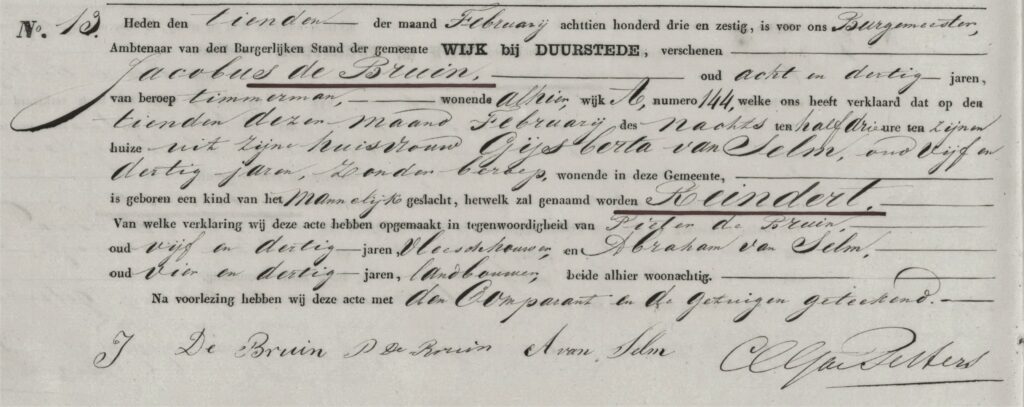 No. 13. Heden den tienden der maand Februarij achttien honderd drie en zestig, is voor ons Burgemeester,
Ambtenaar van den Burgerlijken Stand der gemeente WIJK bij DUURSTEDE, verschenen
Jacobus de Bruin, oud acht en dertig jaren,
van beroep timmerman, wonende alhier, wijk A, numero 144, welke ons heeft verklaard dat op den
tienden dezer maand Februarij des nachts ten half drie ure ten zijnen
huize uit zijne huisvrouw Gijsberta van Selm, oud vijf en
dertig jaren, zonder beroep, wonende in deze Gemeente,
is geboren een kind van het mannelijk geslacht, hetwelk zal genaamd worden Reindert.
Van welke verklaring wij deze acte hebben opgemaakt in tegenwoordigheid van Pieter de Bruin,
oud vijf en dertig jaren, vleeschhouwer, en Abraham van Selm,
oud vier en dertig jaren, landbouwer, beide alhier woonachtig.
Na voorlezing hebben wij deze acte met den Comparant en de getuigen geteekend.
J De Bruin P De Bruin A van Selm